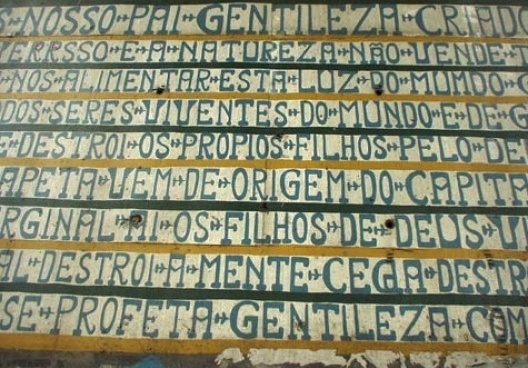 NOSSO PAI GENTILEZA CRIADO
VERRSSO E A NATUREZA NÃO VENDE
NOS ALIMENTAR ESTA LUZ DO MUMDO
DOS SERES VIVENTES DO MUNDO E DE G
E DESTROI OS PROPIOS FILHOS PELO DE
APETA VEM DE ORIGEM DO CAPITA
RGINAL OS FILHOS DE DEUS
AL DESTROI A MENTE CEGA DESTR
SE PROFETA GENTILEZA COM